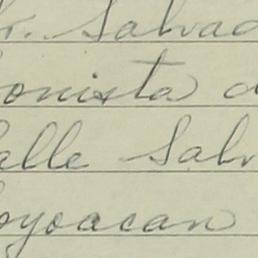 r. Salvad
onista d
alle Salv
oyoacan